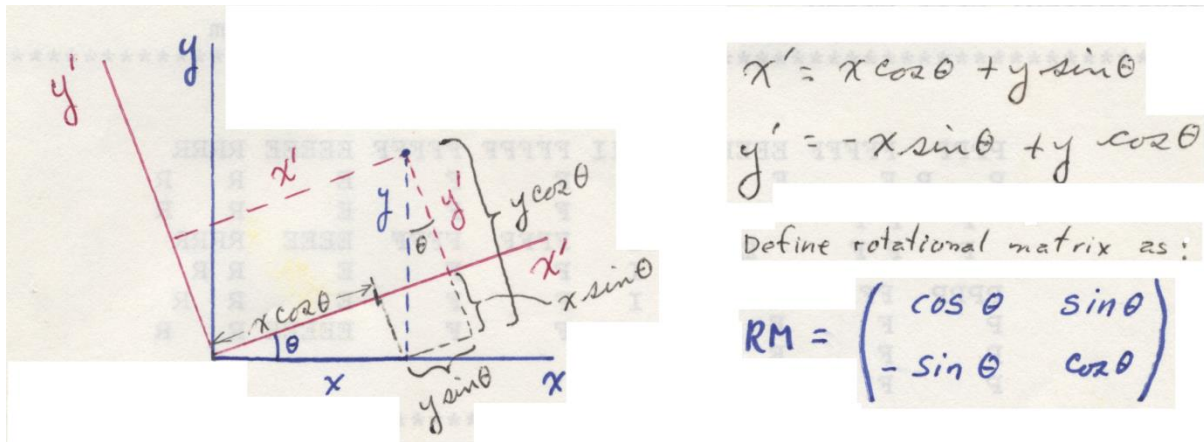 y
y'
x'
y
y'
y cosθ
θ
x'
x sinθ
x cosθ
θ
x
x
y sinθ
x' = x cosθ + y sinθ
y' = -x sinθ + y cosθ
Define rotational matrix as:
RM = ( cos θ sin θ
- sin θ cos θ )